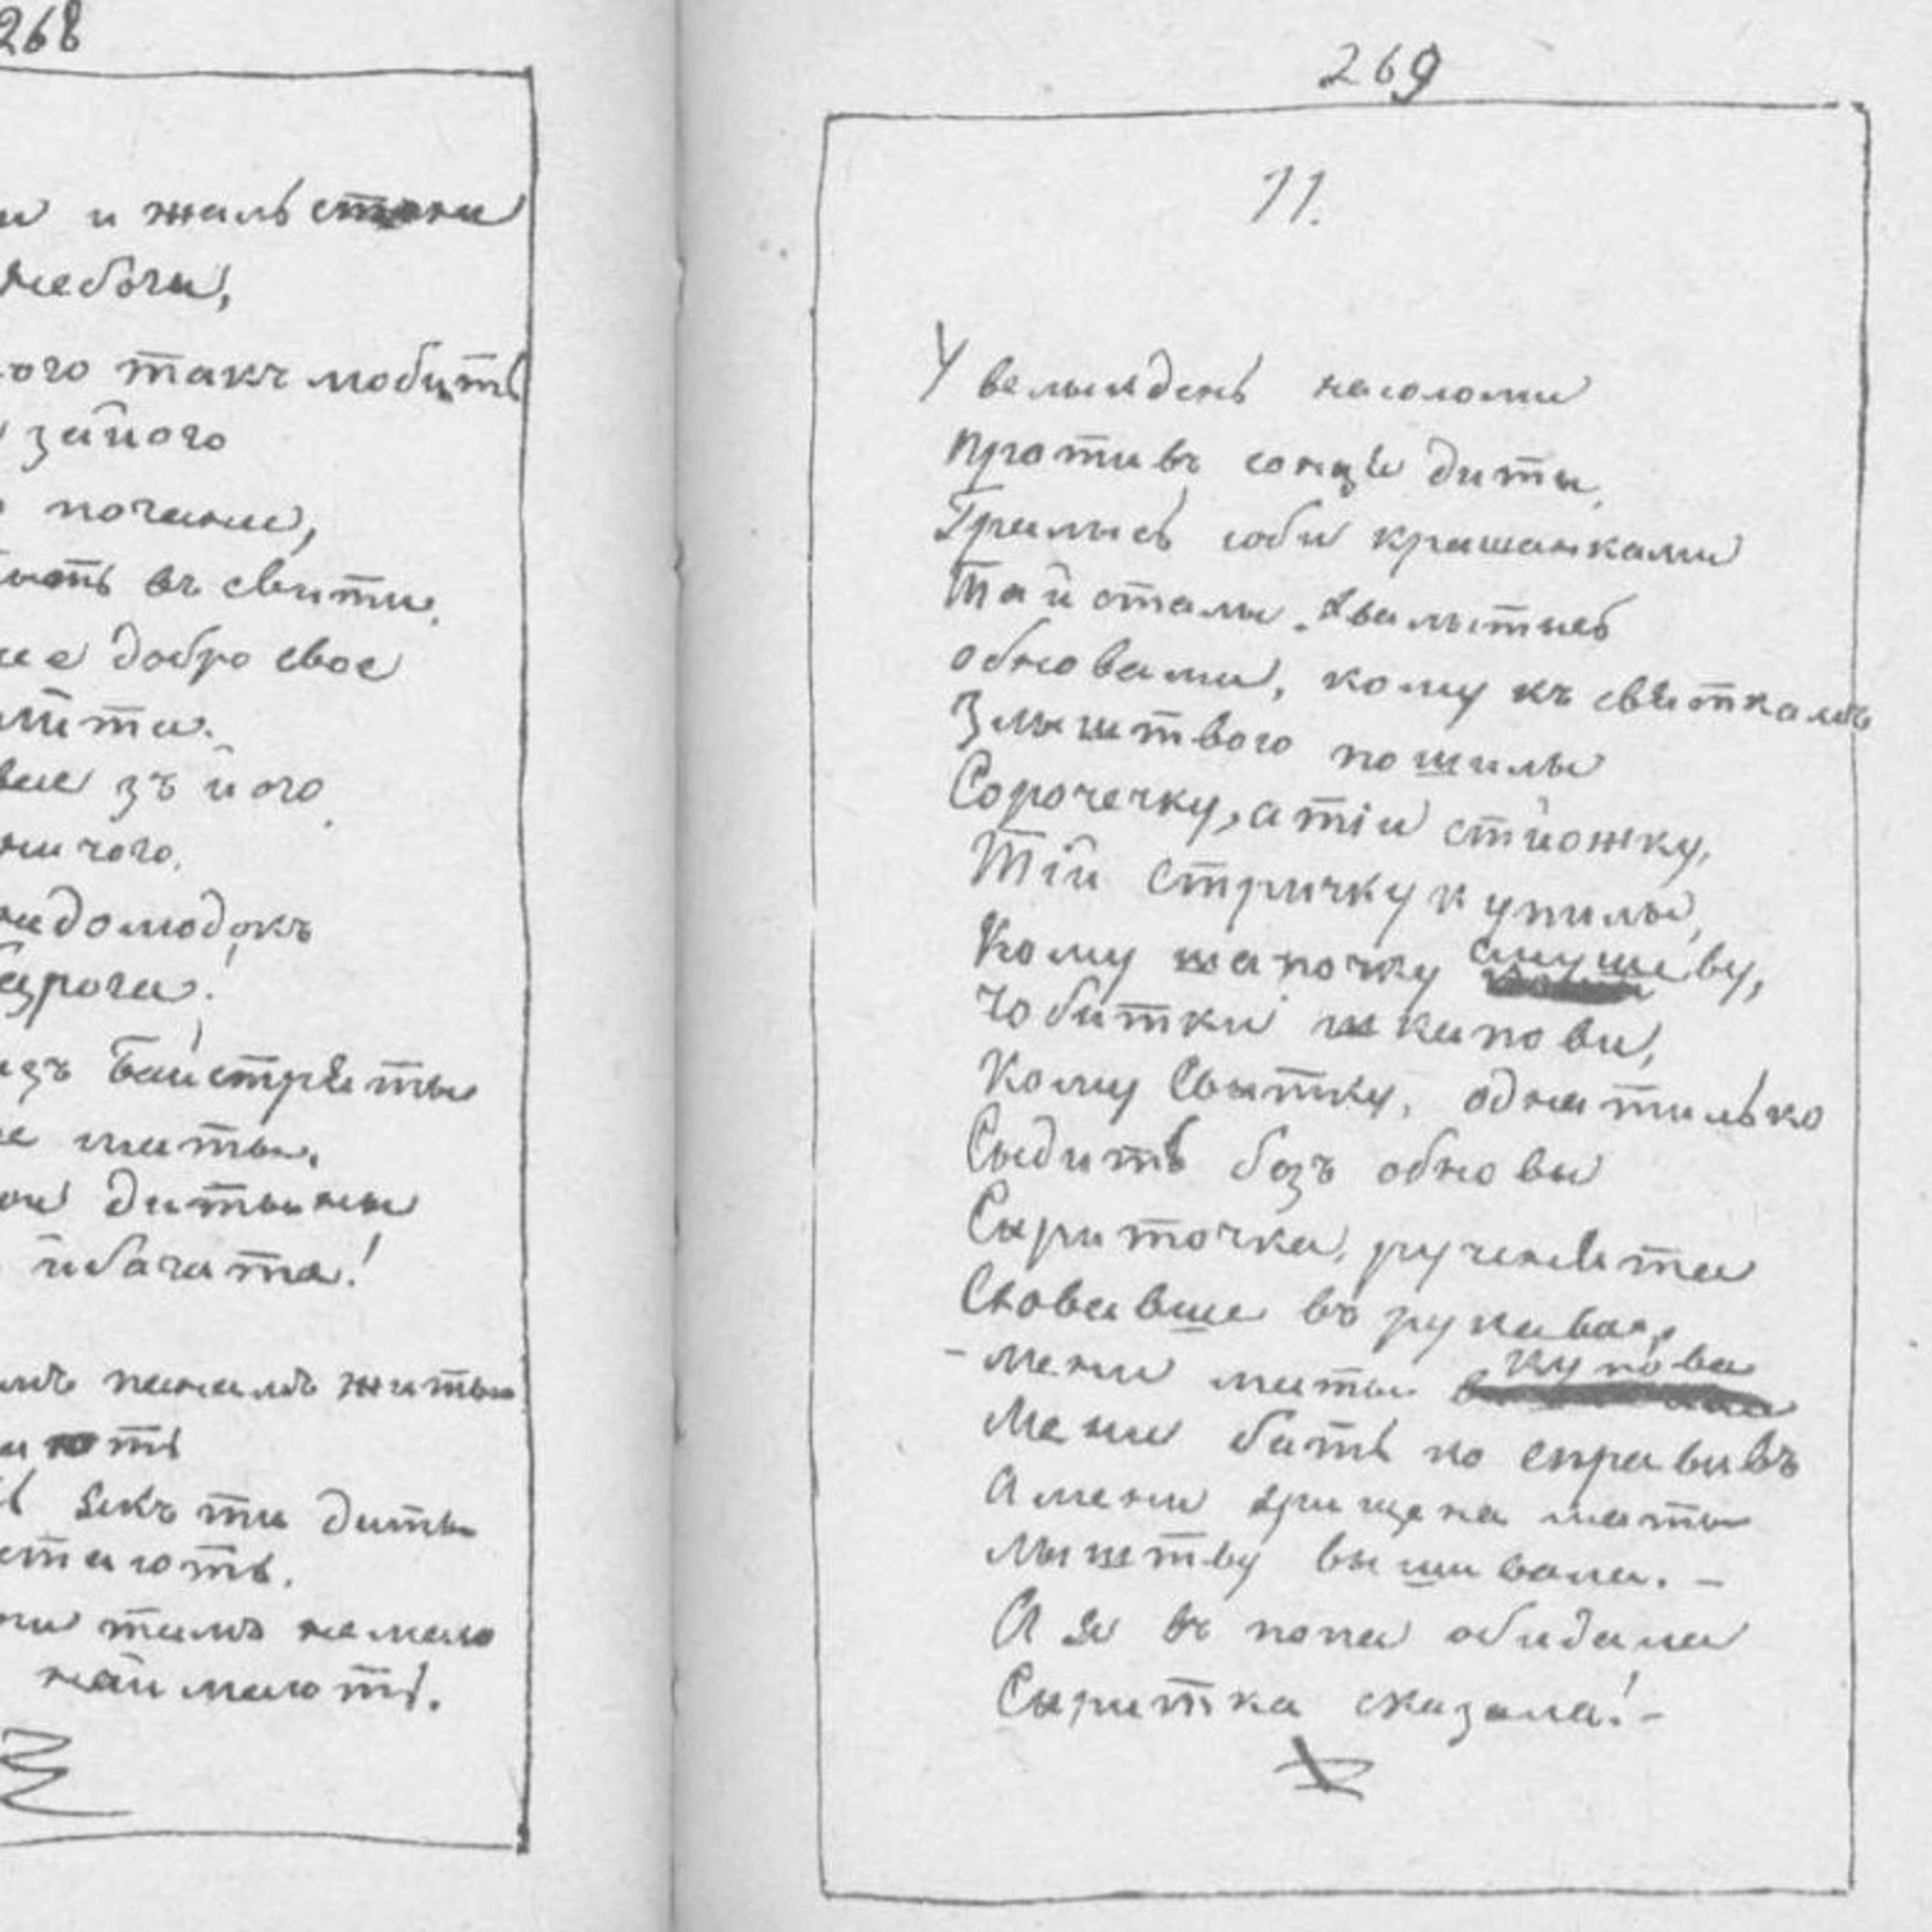 268
и жаль стане
небоги,
ого такъ любить
за його
погане,
въ свити.
добро свое
зъ його
ничого.
недолюдокъ
байстрята
маты.
дитыны
й багата!
панамъ житы
якъ ти диты
тимъ немало
наймають.
269
11.
У велыкдень на соломи
Противъ сонця диты.
Грались соби крашанками
Та й сталы хвалытись
обновами, кому къ святкамъ
З лыштвого пошилы
Сорочечку, а тій стіожку,
Тій стричку купилы,
Кому шапочку смушеву,
Чобитки шкапови,
Кому свытку, одна тилько
Сыдить безъ обновы
Сыриточка, рученята
Сховавше въ рукава.
- Мени маты купова
Мени бать ко справивъ
А мени хрищена маты
Лыштву вышивала. -
А я въ попа обидала
Сыритка сказала! -